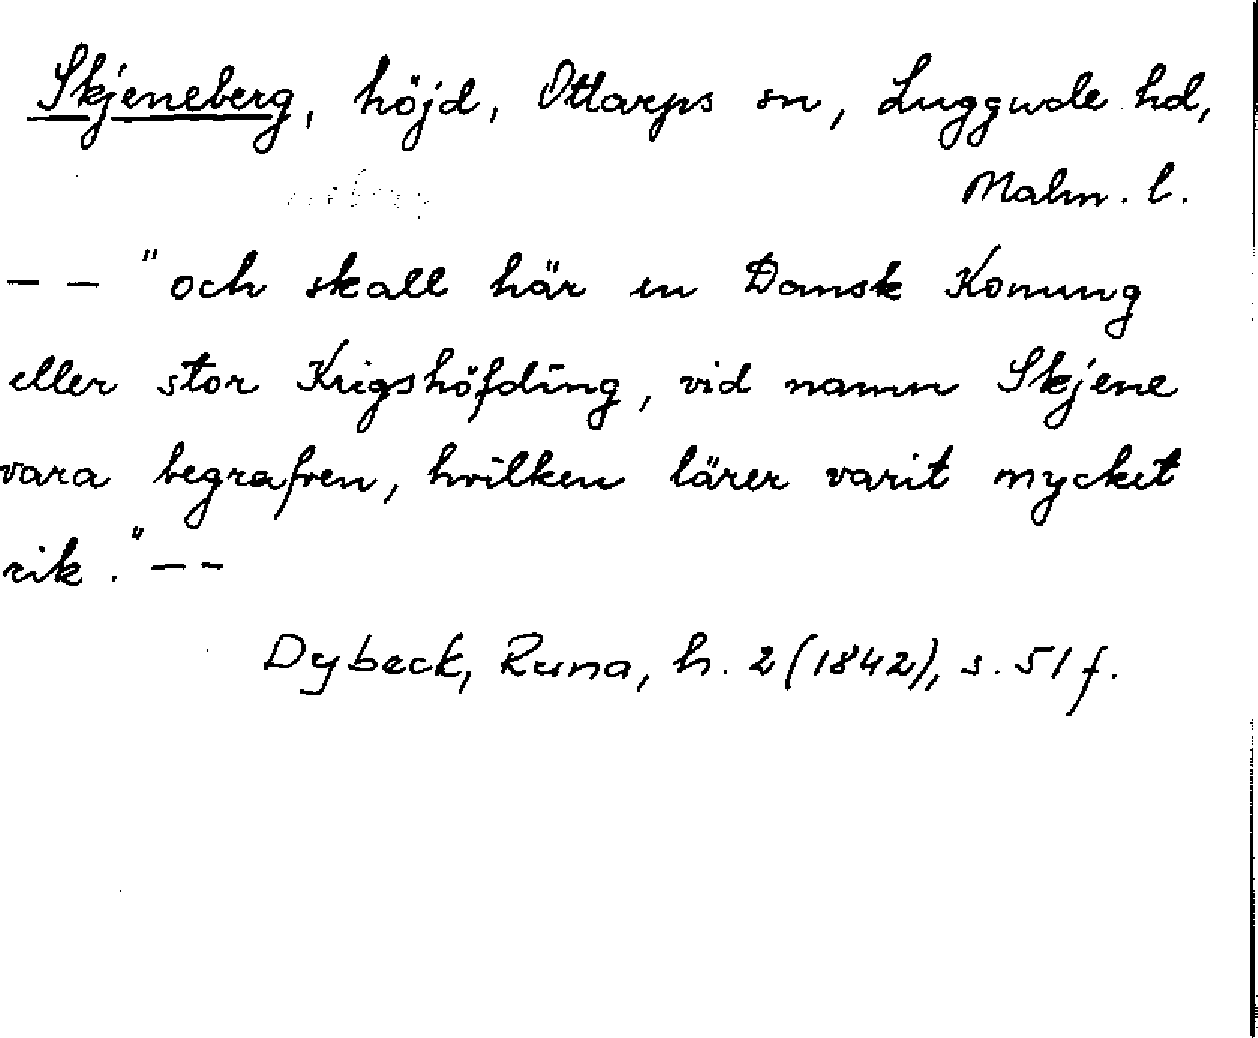 Skjeneberg, höjd, Ottarps sn, Luggude hd,
Malm. l.
– – "och skall här en Dansk Konung
eller stor Krigshöfding, vid namn Skjene
vara begrafven, hvilken lärer varit mycket
rik." – –
Dybeck, Runa, h. 2 (1842), s. 51 f.